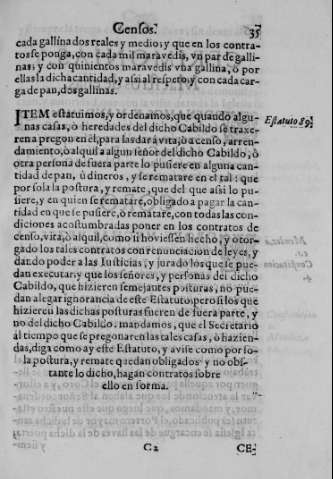 Censos. 35
cada gallina dos reales y medio; y que en los contra-
tos se ponga, con cada mil maravedis, vn par de galli-
nas; y con quinientos maravedis vna gallina, ò por
ellas la dicha cantidad, y assi al respeto; y con cada car-
ga de pan, dos gallinas.
ITEM estatuimos, y ordenamos, que quando algu-
nas casas, ò heredades del dicho Cabildo se traxe-
ren a pregon en el, para las dar à vita, ò a censo, arren-
damiento, ò alqui a algun señor del dicho Cabildo, ò
otra persona de fuera parte lo pusiere en alguna can-
tidad de pan, ù dineros, y se rematare en el tal: que
por sola la postura, y remate, que del que assi lo pu-
siere, y en quien se rematare, obligado a pagar la can-
tidad en que se pusiere, ò rematàre, con todas las con-
diciones acostumbradas poner en los contratos de
censo, vita, ò alquil, como si hoviessen hecho, y otor-
gado los tales contratos con renunciacion de leyes, y
dando poder a las Iusticias, y jurado los que se pue-
dan executar: y que los señores, y personas del dicho
Cabildo, que hizieren semejantes posturas, no pue-
dan alegar ignorancia de este Estatuto; pero si los que
hizieren las dichas posturas fueren de fuera parte, y
no del dicho Cabildo: mandamos, que el Secretario
al tiempo que se pregonaren las tales casas, ò hazien-
das, diga como ay este Estatuto, y avise como por so-
la postura, y remate quedan obligados y no obs-
tante lo dicho, hagan contratos sobre
ello en forma.
Estatuto 89.
C2 CE-